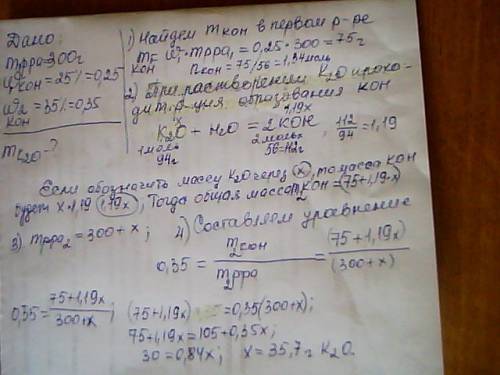 Дано:
mрра=300г
ω1кон=25%=0,25
ω2кон=35%=0,35
mK2O-?
1) Найдем mкон в первом р-ре
mкон=ω1·mрра1=0,25·300=75г
nкон=75/56=1,34моль
2) При растворении K2O происхо-
дит р-ция образования КОН
x 1,19x
K2O + H2O = 2KOH, 112/94=1,19
1моль 2моль
94г 56=112г
Если обозначить массу K2O через x, то масса КОН
будет x·1,19 (1,19x), Тогда общая масса КОН=(75+1,19x)
3) mрра2=300+x; 4) Составляем уравнение
0,35 = m2кон / m2рра = (75+1,19x) / (300+x)
0,35=75+1,19x / 300+x; (75+1,19x) =0,35(300+x);
75+1,19x=105+0,35x;
30=0,84x; x=35,7г K2O.